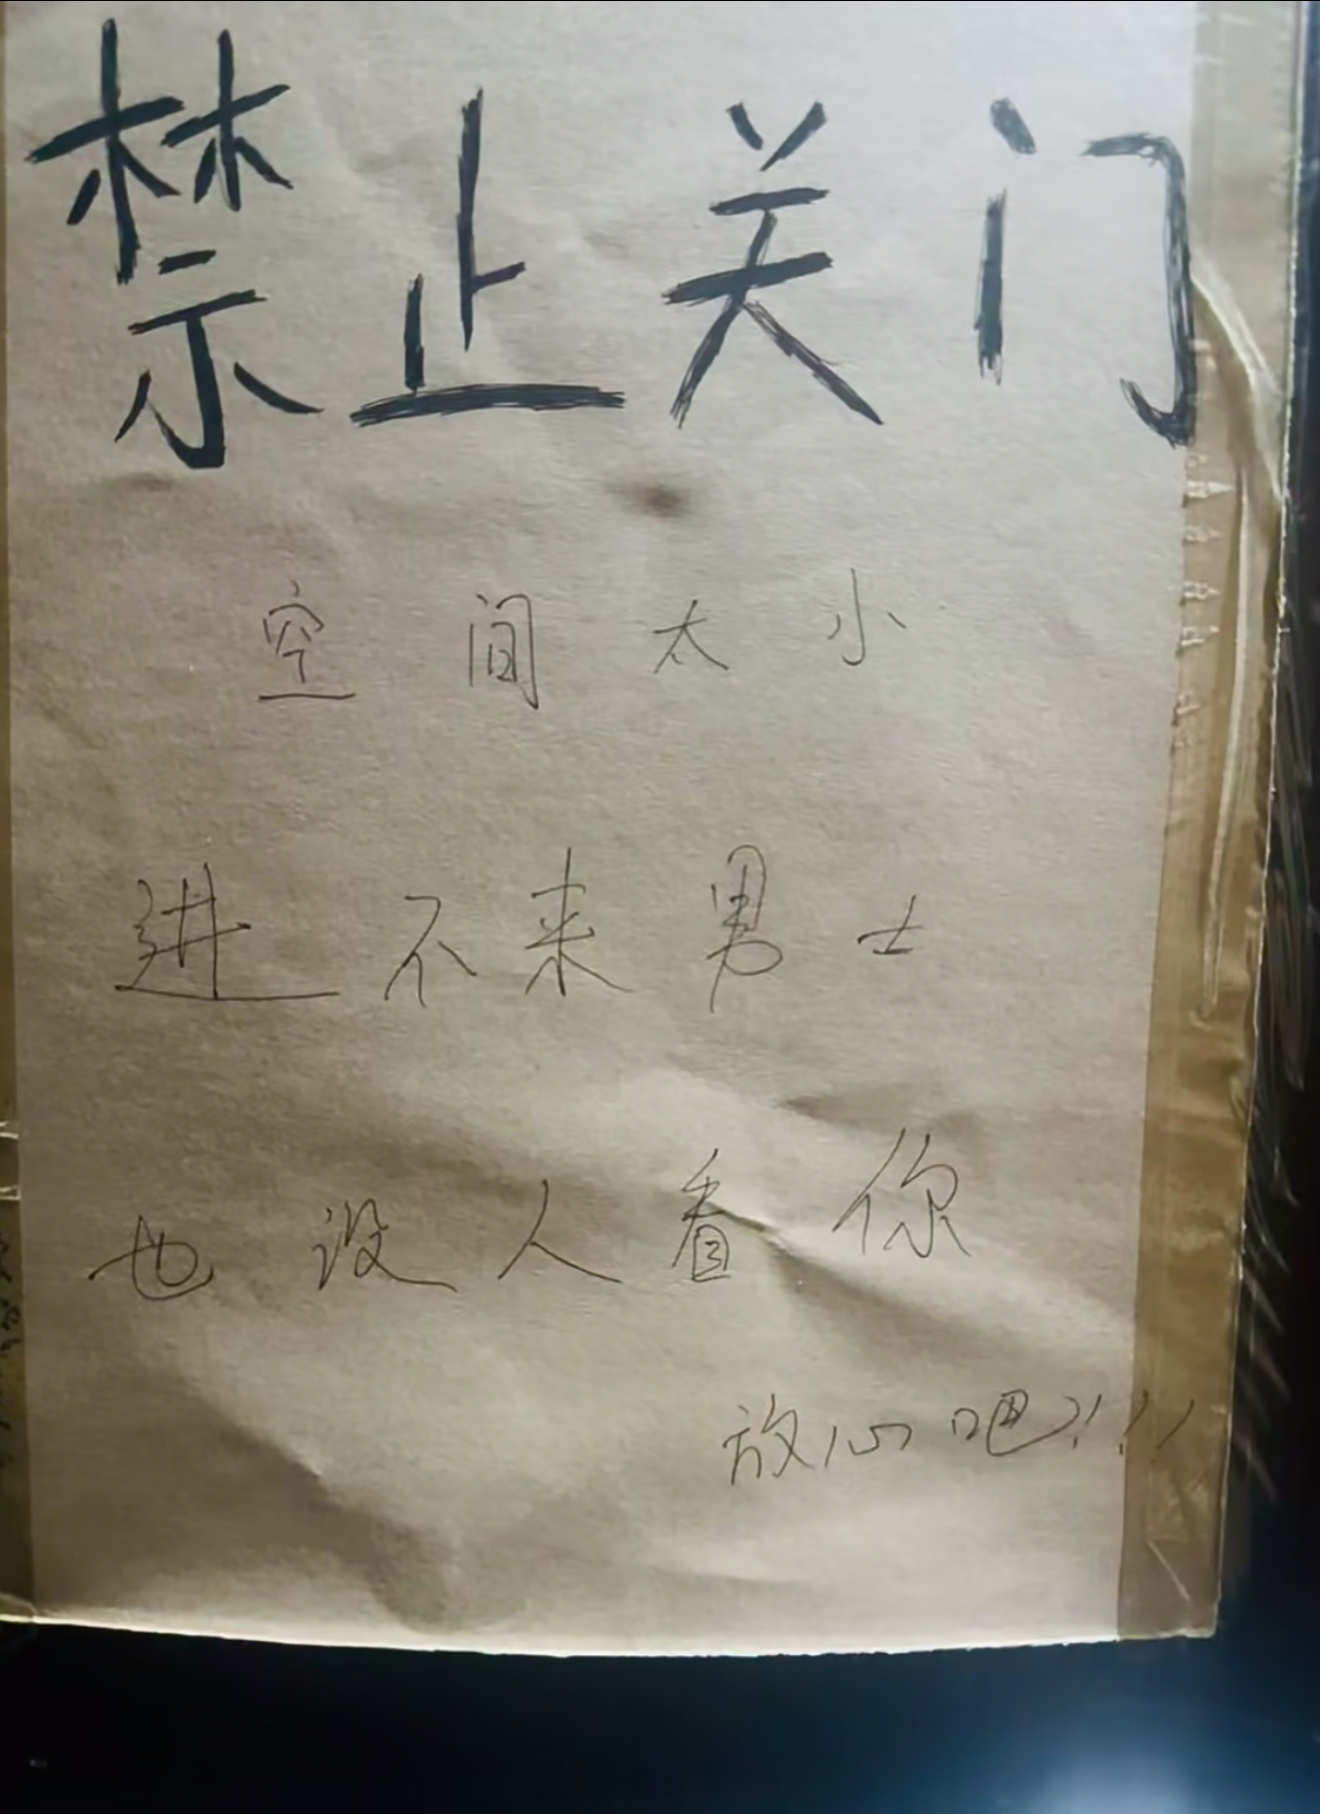 禁止关门
空间太小
进不来男士
也没人看你
放心吧!!!